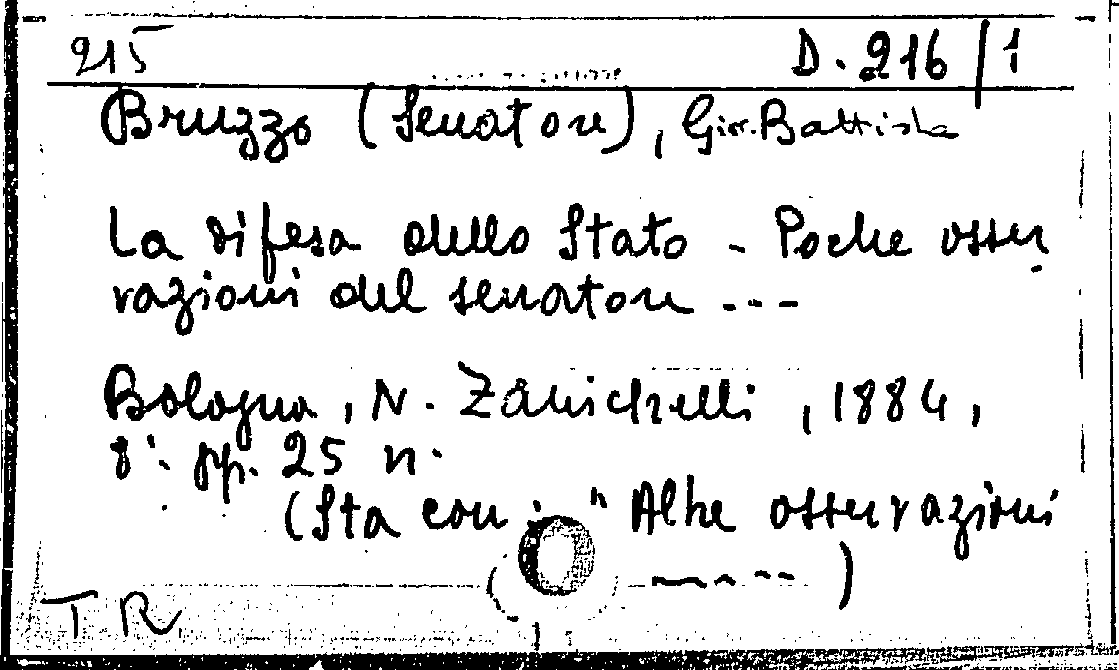 215 D. 216/1
Bruzzo (Senatore), Giov. Battista
La difesa dello Stato - Poche osser
vazioni del senatore ---
Bologna, N. Zanichelli, 1884,
8°. pp. 25 n.
(Sta con: "Altre osservazioni
------)
TR